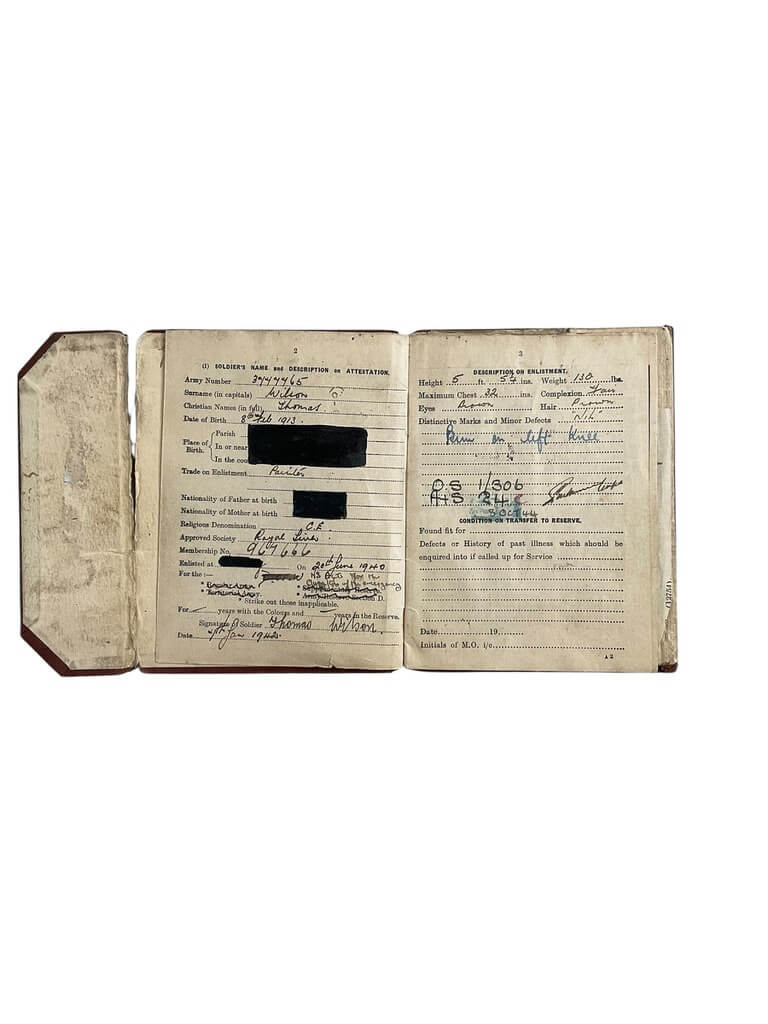 2
(1) SOLDIER'S NAME and DESCRIPTION on ATTESTATION.
Army Number
Surname (in capitals) Wilson
Christian Names (in full) Thomas
Date of Birth 8th Feb 1913.
Place of Birth.
Parish
In or near
In the cou
Trade on Enlistment Painter
Nationality of Father at birth
Nationality of Mother at birth
Religious Denomination C.E.
Approved Society Royal Liver
Membership No. 967666
Enlisted at On 20th June 1940
For the :—
* Strike out those inapplicable.
For years with the Colours and years in the Reserve.
Signature of Soldier Thomas Wilson.
Date Jan 1942.
3
DESCRIPTION ON ENLISTMENT.
Height 5 ft. 5¼ ins. Weight 130 lbs.
Maximum Chest 32 ins. Complexion Fair
Eyes Brown Hair Brown
Distinctive Marks and Minor Defects NIL
on left knee
O.S 1/306
A+S 24
3 OCT 44
CONDITION ON TRANSFER TO RESERVE.
Found fit for
Defects or History of past Illness which should be
enquired into if called up for Service
Date 19
Initials of M.O. i/c
A 2